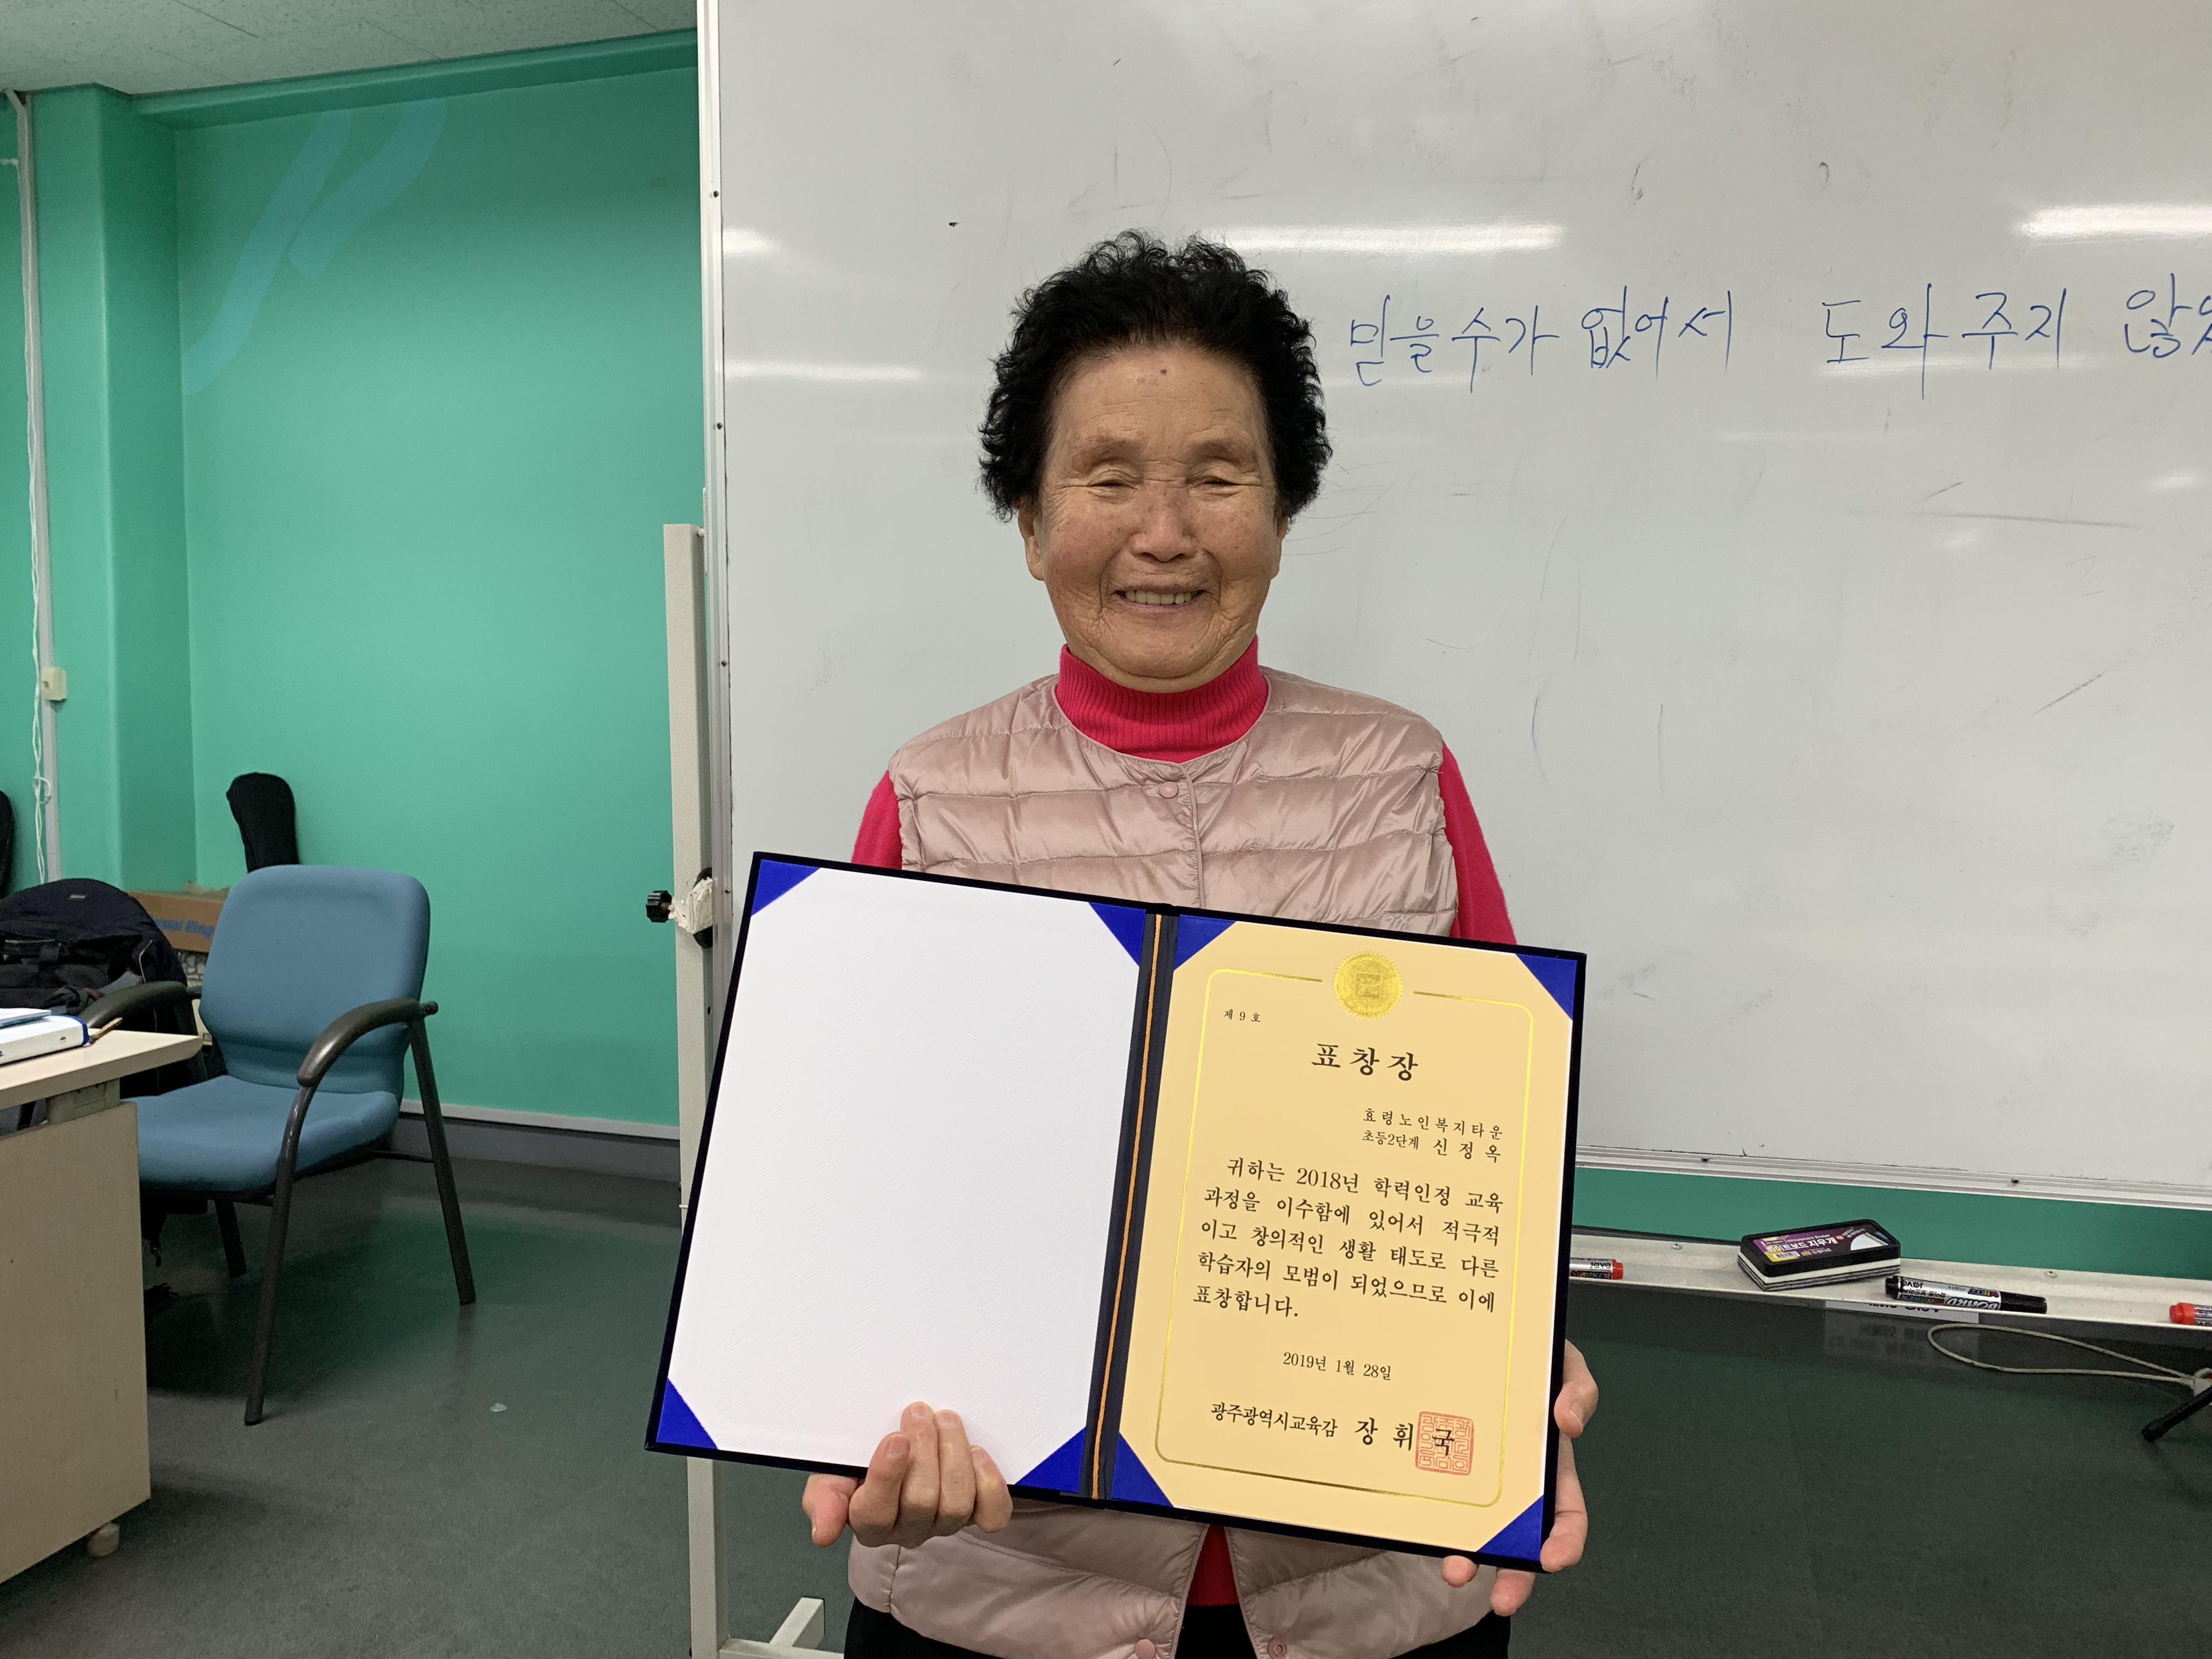 믿을수가 없어서 도와주지
제 9 호
표창장
효령노인복지타운
초등2단계 신정옥
귀하는 2018년 학력인정 교육
과정을 이수함에 있어서 적극적
이고 창의적인 생활 태도로 다른
학습자의 모범이 되었으므로 이에
표창합니다.
2019년 1월 28일
광주광역시교육감 장휘국